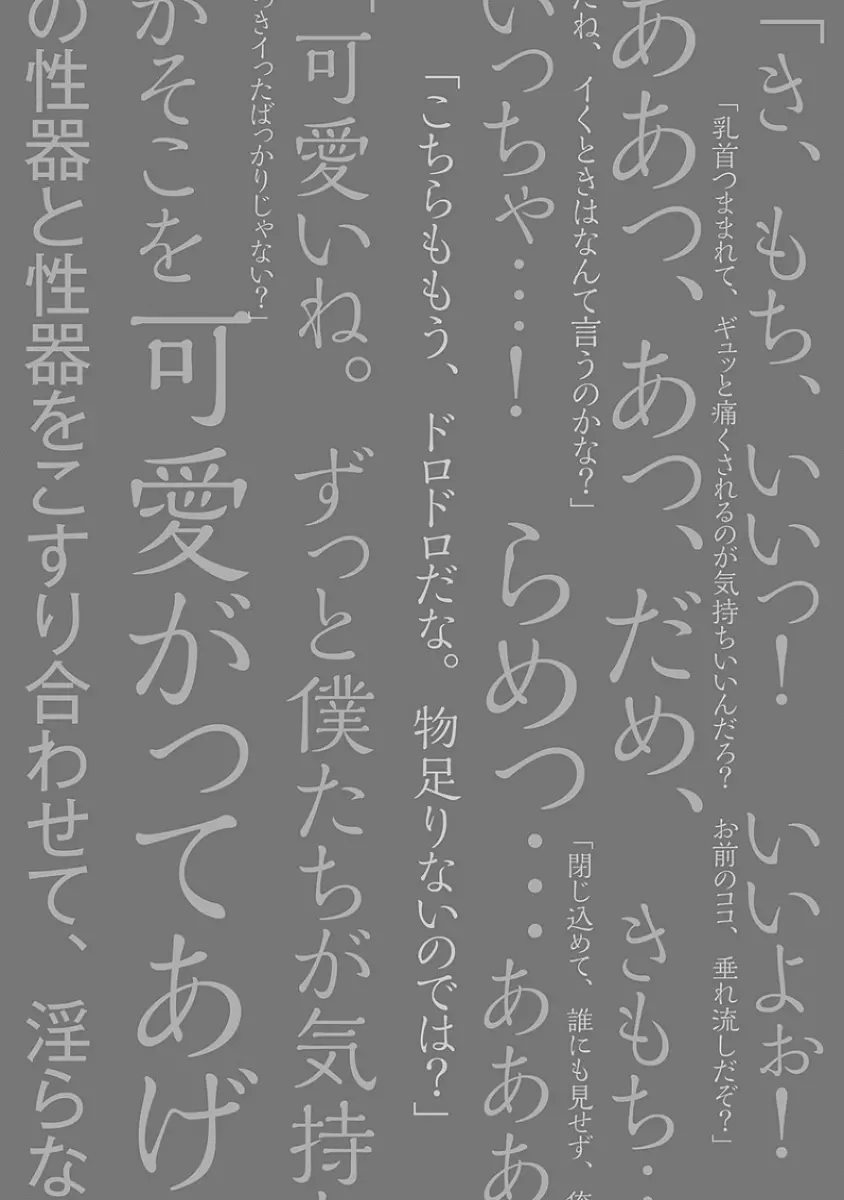 「き、もち、いいっ！　いいよぉ！
「乳首つままれて、ギュッと痛くされるのが気持ちいいんだろ？　お前のココ、垂れ流しだぞ？」
ああっ、あっ、だめ、　きもち‥
だね、イくときはなんて言うのかな？」　「閉じ込めて、誰にも見せず、俺
いっちゃ……！　らめっ……あああ
「こちらももう、ドロドロだな。物足りないのでは？」
「可愛いね。ずっと僕たちが気持
っきイったばっかりじゃない？」
がそこを可愛がってあげ
の性器と性器をこすり合わせて、淫らな